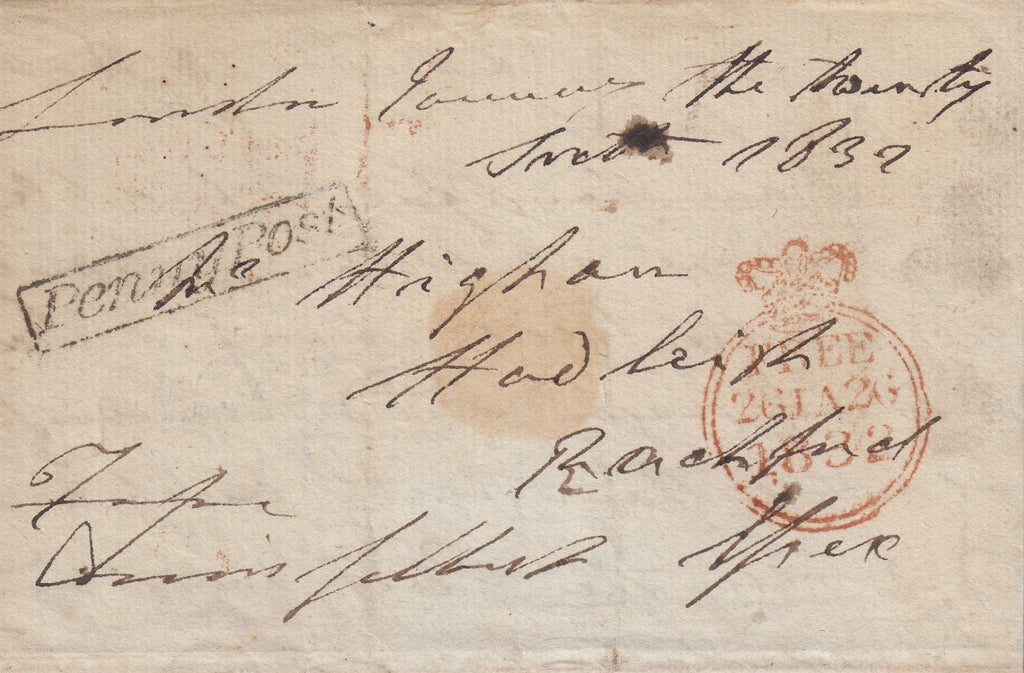 London January the twenty
sixth 1832
Penny Post
Mr Higham
Hadleigh
FREE
26 JA 26
1832
Rochford
Free
Essex
Davies Gilbert